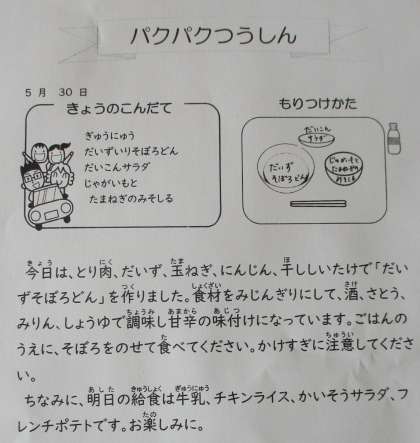 パクパクつうしん
5月 30日
きょうのこんだて
ぎゅうにゅう
だいずいりそぼろどん
だいこんサラダ
じゃがいもと
たまねぎのみそしる
もりつけかた
だいこん
サラダ
だいず
そぼろどん
じゃがいもと
たまねぎの
みそしる
今日は、とり肉、だいず、玉ねぎ、にんじん、干ししいたけで「だい
ずそぼろどん」を作りました。食材をみじんぎりにして、酒、さとう、
みりん、しょうゆで調味し甘辛の味付けになっています。ごはんの
うえに、そぼろをのせて食べてください。かけすぎに注意してくださ
い。
ちなみに、明日の給食は牛乳、チキンライス、かいそうサラダ、フ
レンチポテトです。お楽しみに。